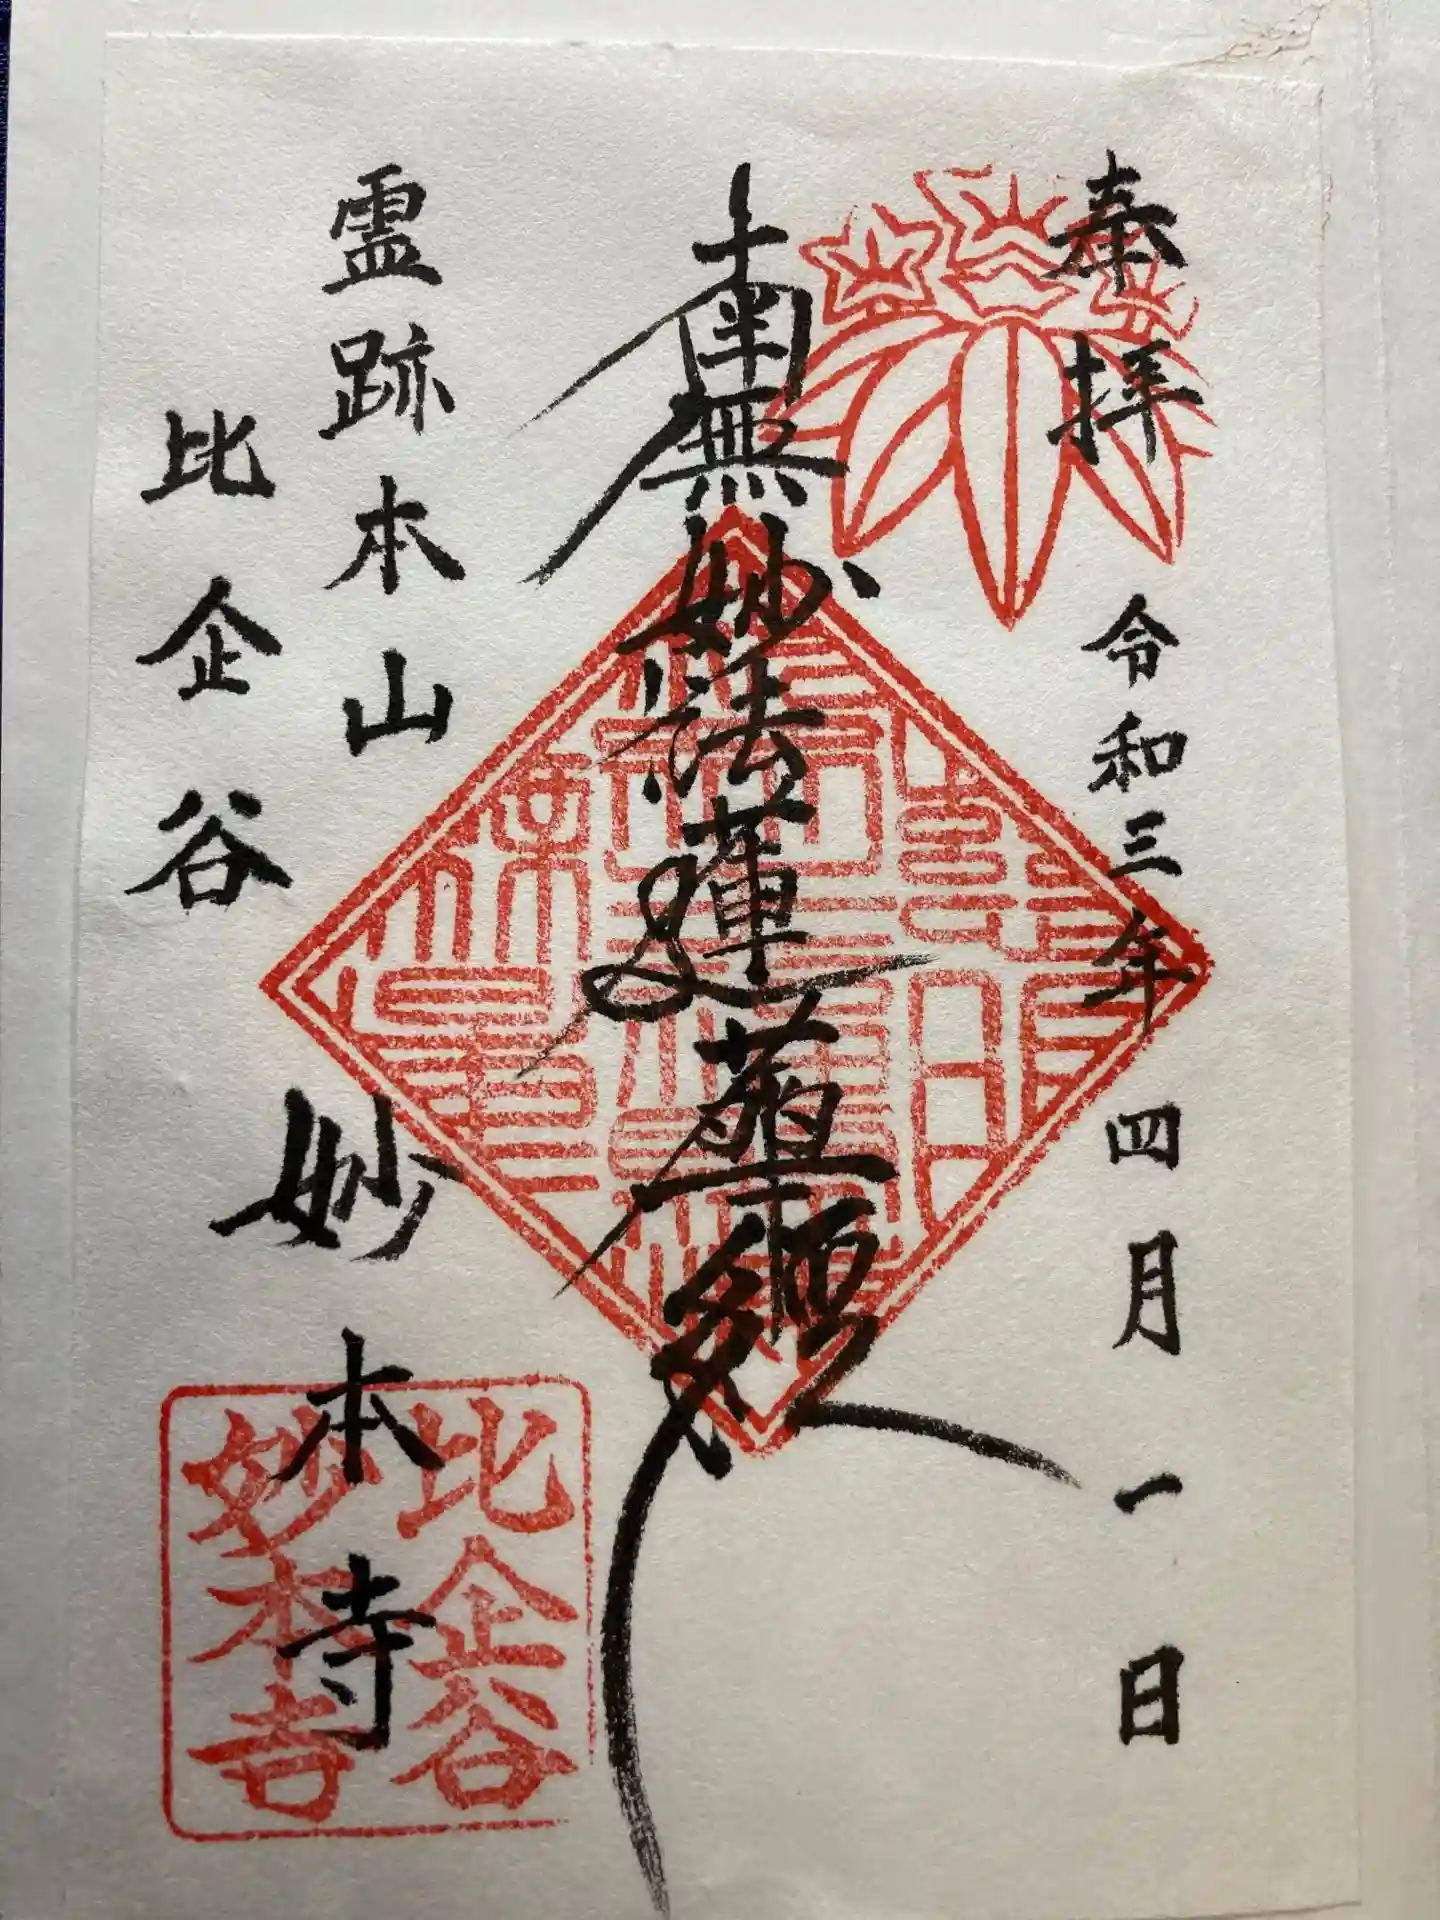 奉拝
令和三年四月一日
南無妙法蓮華経
霊跡本山
比企谷
妙本寺
比企谷
妙本寺